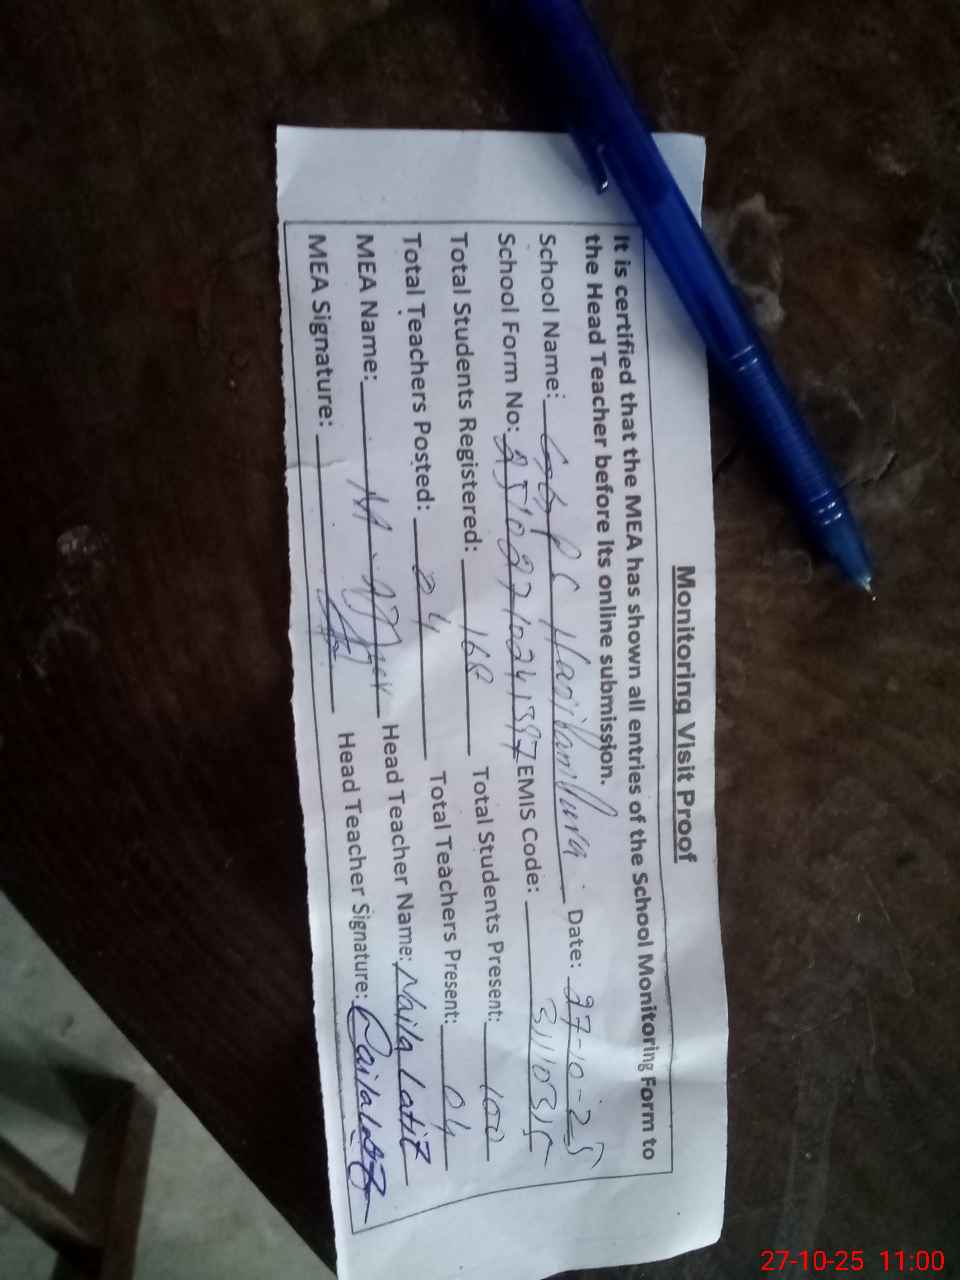 Monitoring Visit Proof
It is certified that the MEA has shown all entries of the School Monitoring Form to
the Head Teacher before its online submission.
School Name: Date: 27-10-25
School Form No: EMIS Code: 31110315
Total Students Registered: 168 Total Students Present: 100
Total Teachers Posted: 04 Total Teachers Present: 04
MEA Name: Head Teacher Name: Naila Latif
MEA Signature: Head Teacher Signature:
27-10-25 11:00